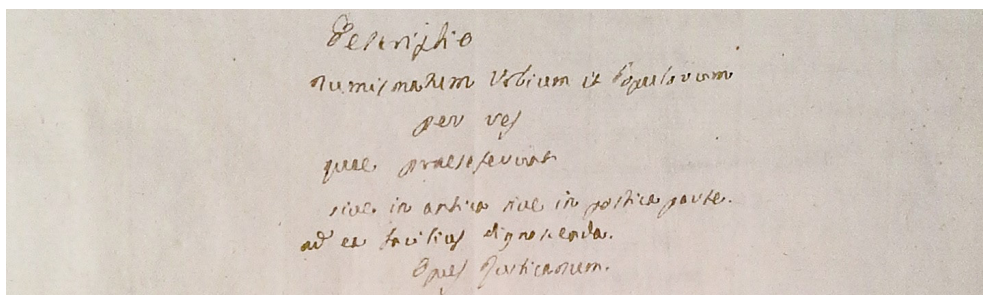 Descriptio
Numismatum Urbium et Populorum
per res
quae praeseferunt
sive in antica sive in postica parte.
ad ea facilius dignoscenda.
Opus Rusticanum.